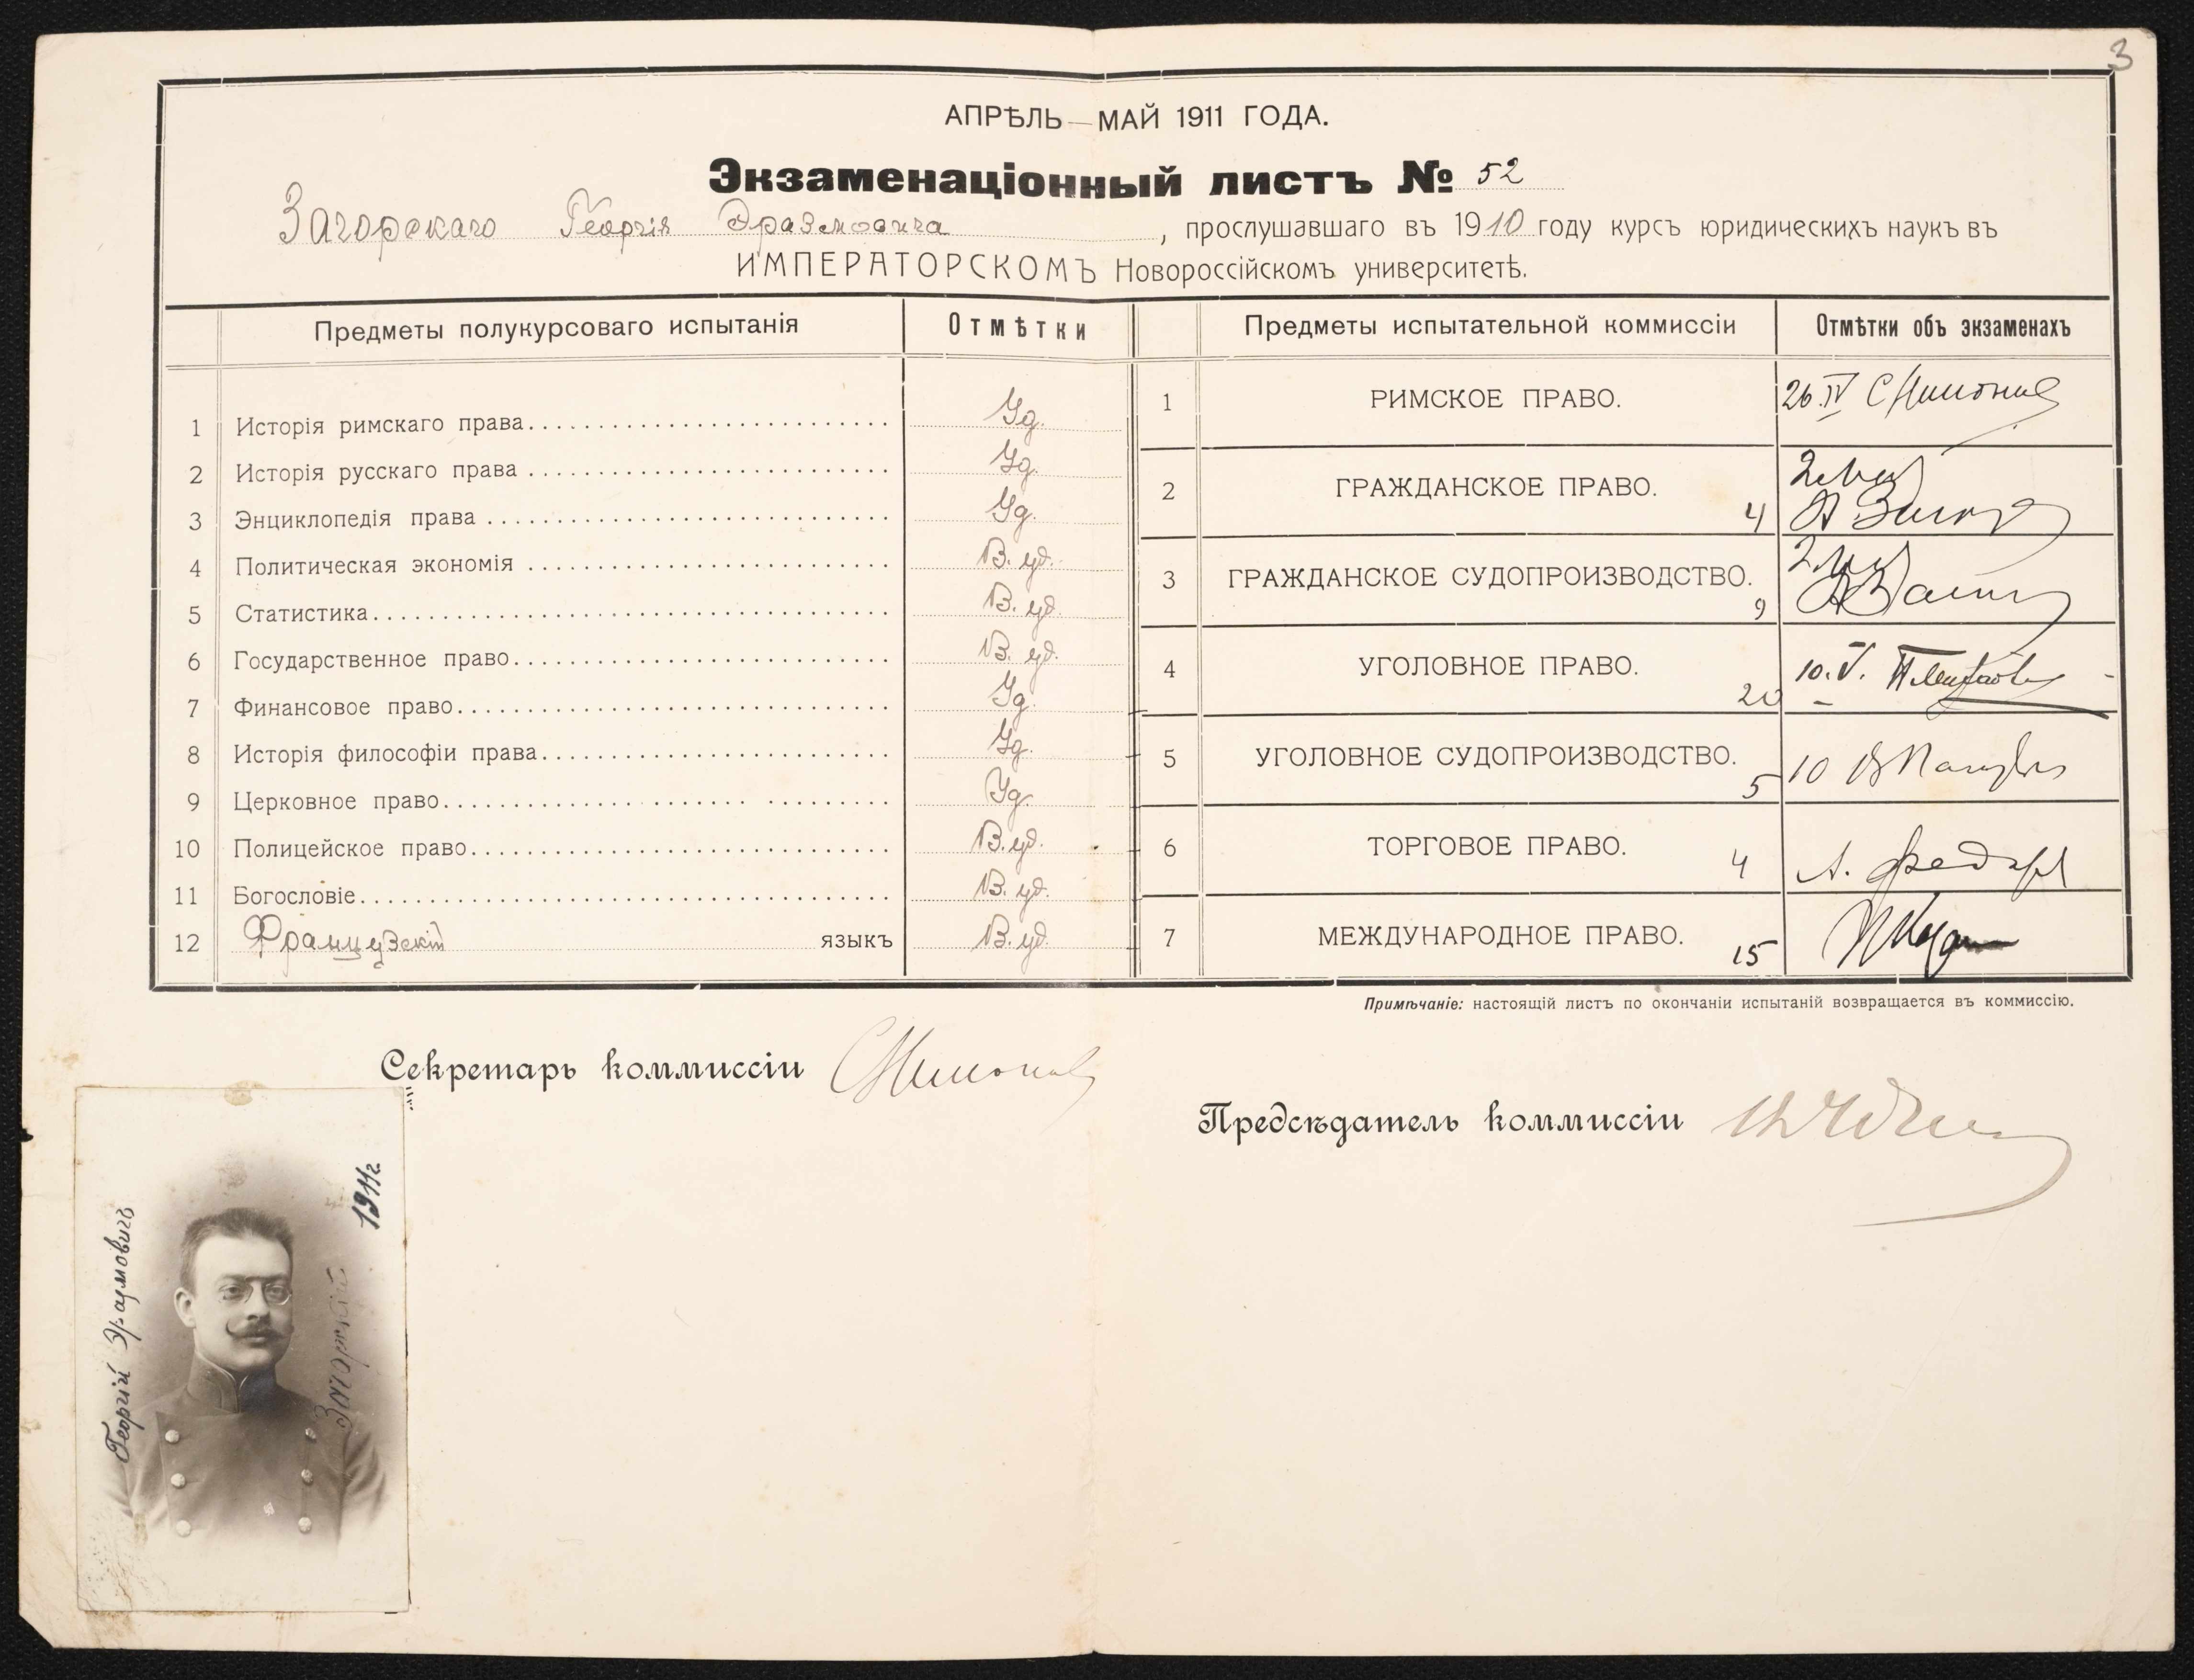 3
АПРѢЛЬ—МАЙ 1911 ГОДА.
Экзаменаціонный листъ № 52
Загорскаго Георгія Эразмовича, прослушавшаго въ 1910 году курсъ юридическихъ наукъ въ
ИМПЕРАТОРСКОМЪ Новороссійскомъ университетѣ.
Предметы полукурсоваго испытанія Отмѣтки
1 Исторія римскаго права Уд.
2 Исторія русскаго права Уд.
3 Энциклопедія права Уд.
4 Политическая экономія В. уд.
5 Статистика В. уд.
6 Государственное право В. уд.
7 Финансовое право Уд.
8 Исторія философіи права Уд.
9 Церковное право Уд.
10 Полицейское право В. уд.
11 Богословіе В. уд.
12 Французскій языкъ В. уд.
Предметы испытательной коммиссіи Отмѣтки объ экзаменахъ
1 РИМСКОЕ ПРАВО. 26.IV
2 ГРАЖДАНСКОЕ ПРАВО. 4 2
3 ГРАЖДАНСКОЕ СУДОПРОИЗВОДСТВО. 9 2
4 УГОЛОВНОЕ ПРАВО. 20 10.V.
5 УГОЛОВНОЕ СУДОПРОИЗВОДСТВО. 5 10
6 ТОРГОВОЕ ПРАВО. 4
7 МЕЖДУНАРОДНОЕ ПРАВО. 15
Примѣчаніе: настоящій листъ по окончаніи испытаній возвращается въ коммиссію.
Секретарь коммиссіи
Предсѣдатель коммиссіи
Георгій Эразмовичъ
Загорскій
1911г.